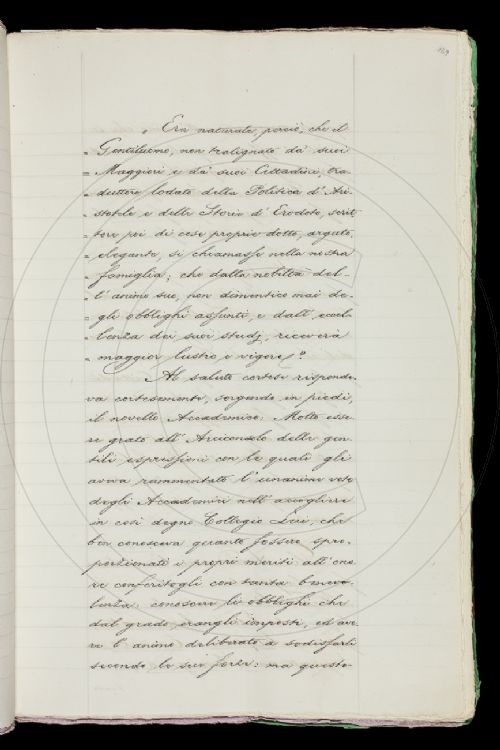 129
„ Era naturale, perciò, che il
„ Gentiluomo, non tralignato da' suoi
= Maggiori e da' suoi Cittadini, tra-
= duttore lodato della Politica d' Ari-
= stotele e delle Storie d' Erodoto, scrit-
= tore poi di cose proprie dotto, arguto,
= elegante, si chiamasse nella nostra
= famiglia; che dalla nobiltà del-
= l' animo suo, non dimentico mai de-
= gli obblighi assunti, e dall' eccel-
= lenza dei suoi studj, riceverà
= maggior lustro e vigore „?
Al saluto cortese risponde-
va cortesemente, sorgendo in piedi,
il novello Accademico: Molto esse-
re grato all' Arciconsolo delle gen-
tili espressioni con le quali gli
aveva rammentato l' unanime voto
degli Accademici nell' accogliere
in così degno Collegio Lui, che
ben conosceva quanto fossero spro-
porzionati i proprj meriti all' ono-
re conferitogli con tanta benevo-
lenza: conoscere le obblighi che
dal grado erangli imposti, ed ave-
re l' animo deliberato a sodisfarli
secondo le sue forze: ma questo